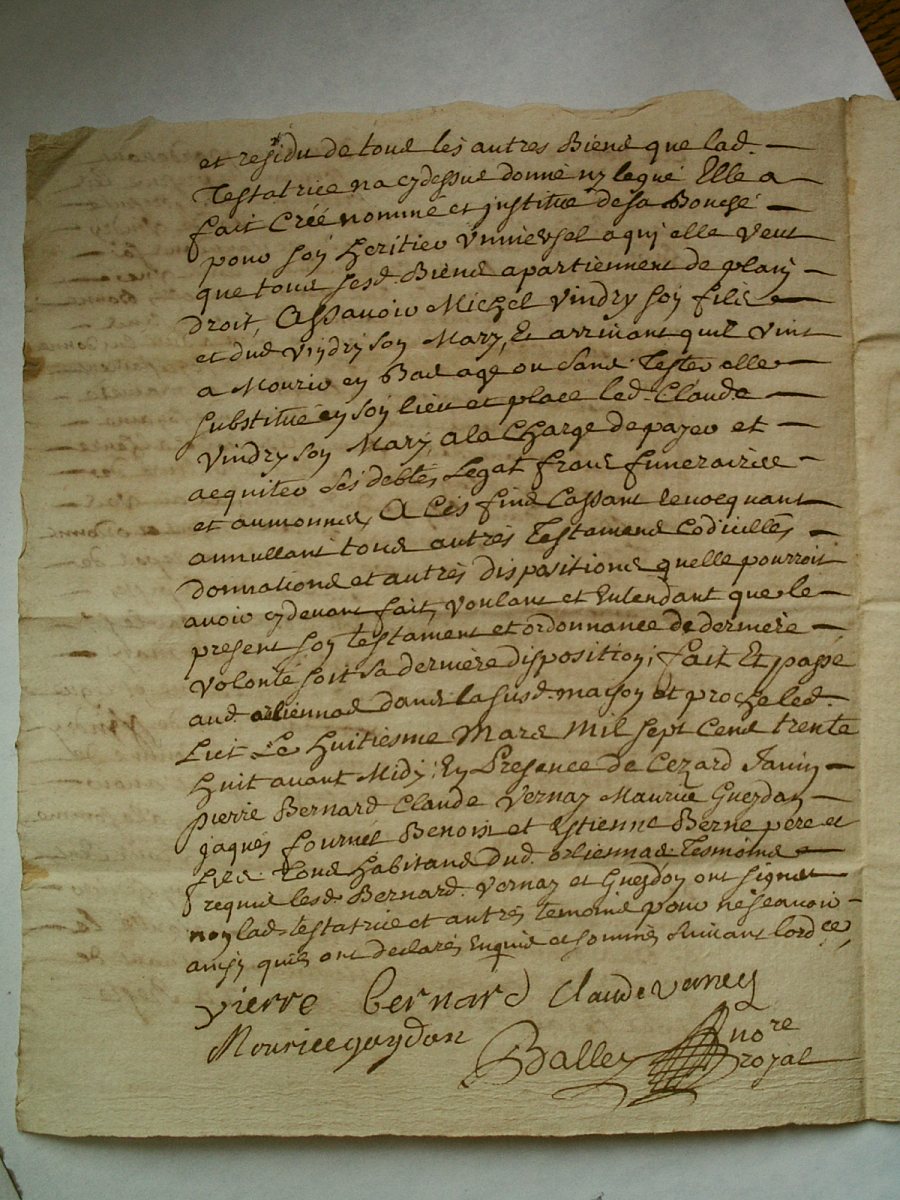 et residu de tous les autres Biens que lad.
Testatrice na cydessus donné ny legué Elle a
fait Créé nommé et jnstitué de sa Bouche
pour son Heritier Vnniversel a quj elle veut
que tous sesd. Biens apartiennent de plain
droit, Assavoir Michel Vindry son fils
et dud Vindry son Mary, Et arrivant quil vint
a Mourir en Bas age ou sans Tester elle
substitué en son lieu et place led. Claude
Vindry son Mary, a la Charge de payer et
acquiter ses debtes, Legat frais funerairies
et aumonnes, A Ces fins Cassant Revocquant
annullant tous autres Testamens Codicilles
donnations et autres dispositions quelle pourroit
avoir cydevant fait, voulant et Entendant que le
present son testament et ordonnance de derniere
volonté soit sa derniere disposition; fait Et passé
aud. orliennas dans la susd. maison et proche led.
Lict Le Huitiesme Mars Mil sept Cens trente
Huit avant Midy; En Presence de Cezard Janin
pierre Bernard Claude Vernay Maurice Gueydan
jaques fournet Benoist et Estienne Berne pere et
fils Tous Habitans dud. orliennas Tesmoins
requis lesd. Bernard. Vernay et Gueydon ont signer
non lad. testatrice et autres temoins pour ne sçavoir
ainsy quils ont declarés Enquis et sommés suivant lordce,
pierre bernard Claude verney
Mouricegaydan
Balley nore
royal